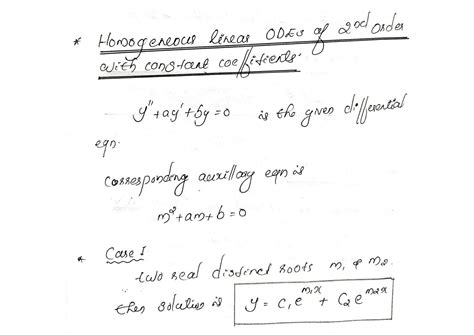 * Homogeneous linear ODEs of 2nd Order
with constant coefficients.
y'' + ay' + by = 0 is the given differential
eqn.
corresponding auxillary eqn is
m² + am + b = 0
* Case I
two real distinct roots m₁ & m₂.
then solution is y = C₁e^m₁x + C₂e^m₂x